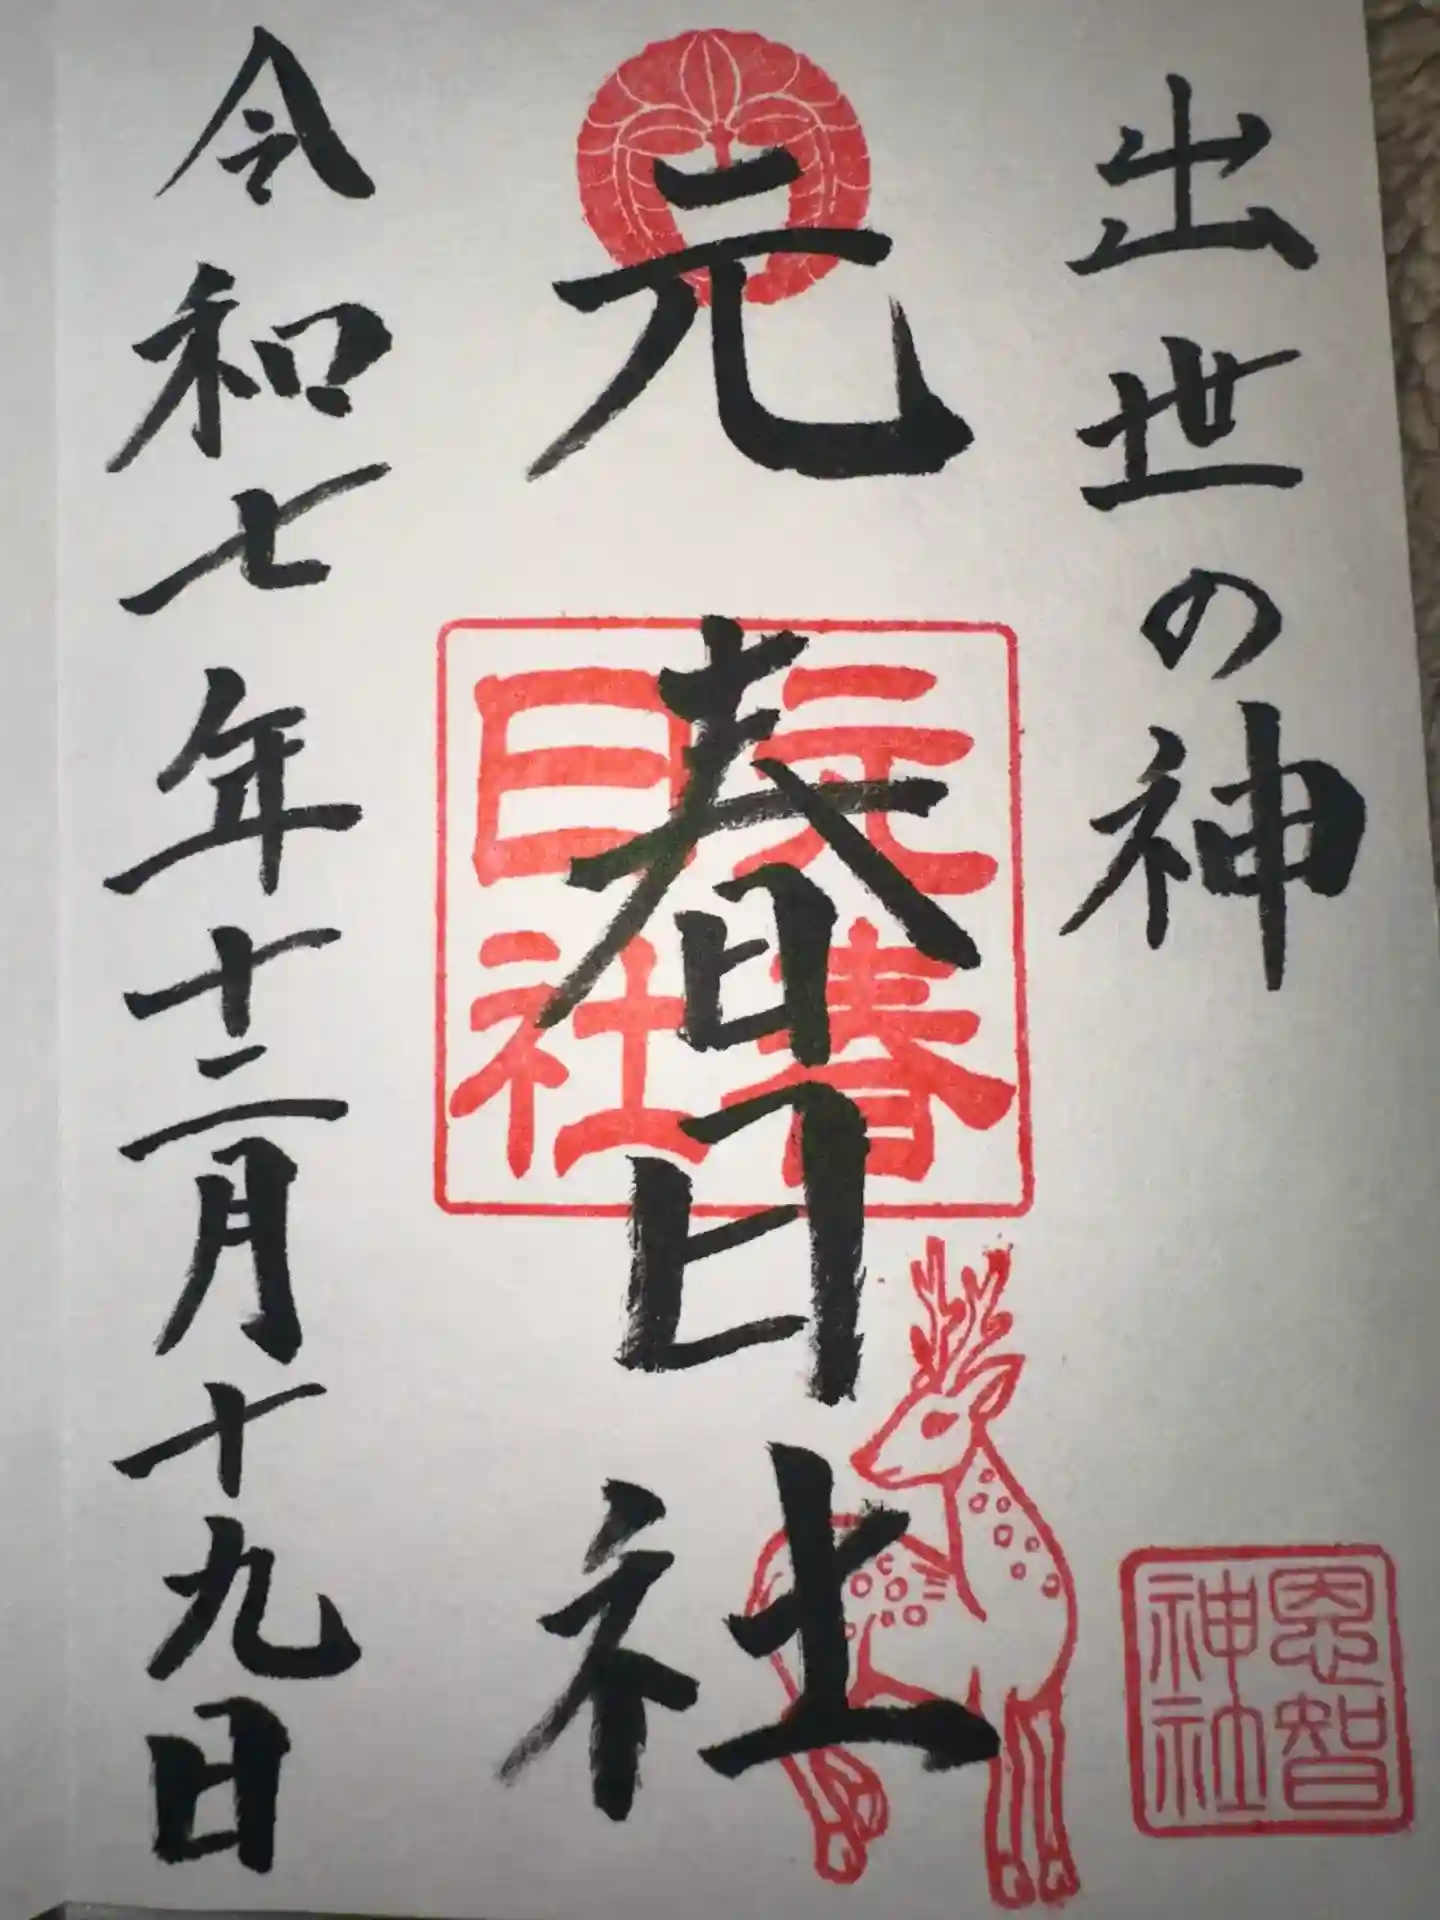 出世の神
恩智
神社
元春日社
元春
日社
令和七年十二月十九日